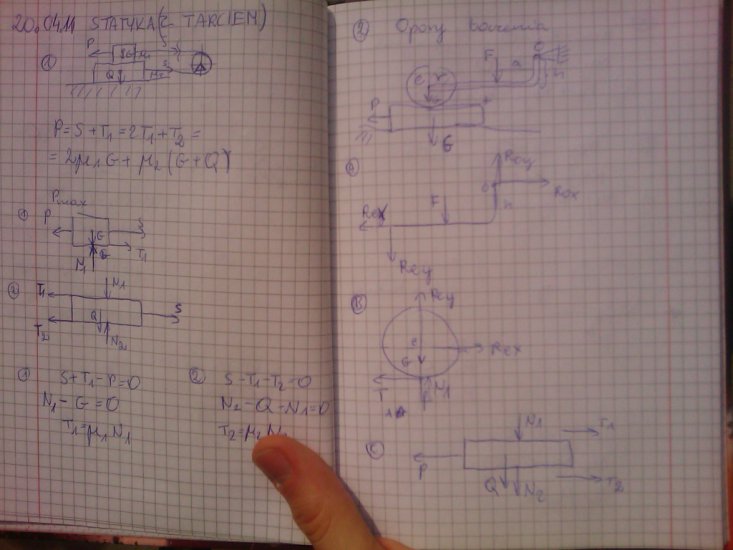 20.04.11 STATYKA (Z TARCIEM)
①
P
G
μ1
S
Q
μ2
S
P = S + T1 = 2T1 + T2 =
= 2μ1G + μ2 (G + Q)
①
Pmax
P
S
G
T1
N1
②
T1
N1
T2
Q
N2
S
①
S + T1 - P = 0
N1 - G = 0
T1 = μ1 N1
②
S - T1 - T2 = 0
N2 - Q - N1 = 0
T2 = μ2 N2
② Opory toczenia
F
O
a
h
C
r
P
G
Roy
O
Rox
F
h
Rcx
Rcy
Ⓑ
Rcy
C
G
Rcx
T
N1
Ⓒ
N1
T1
P
Q
N2
T2